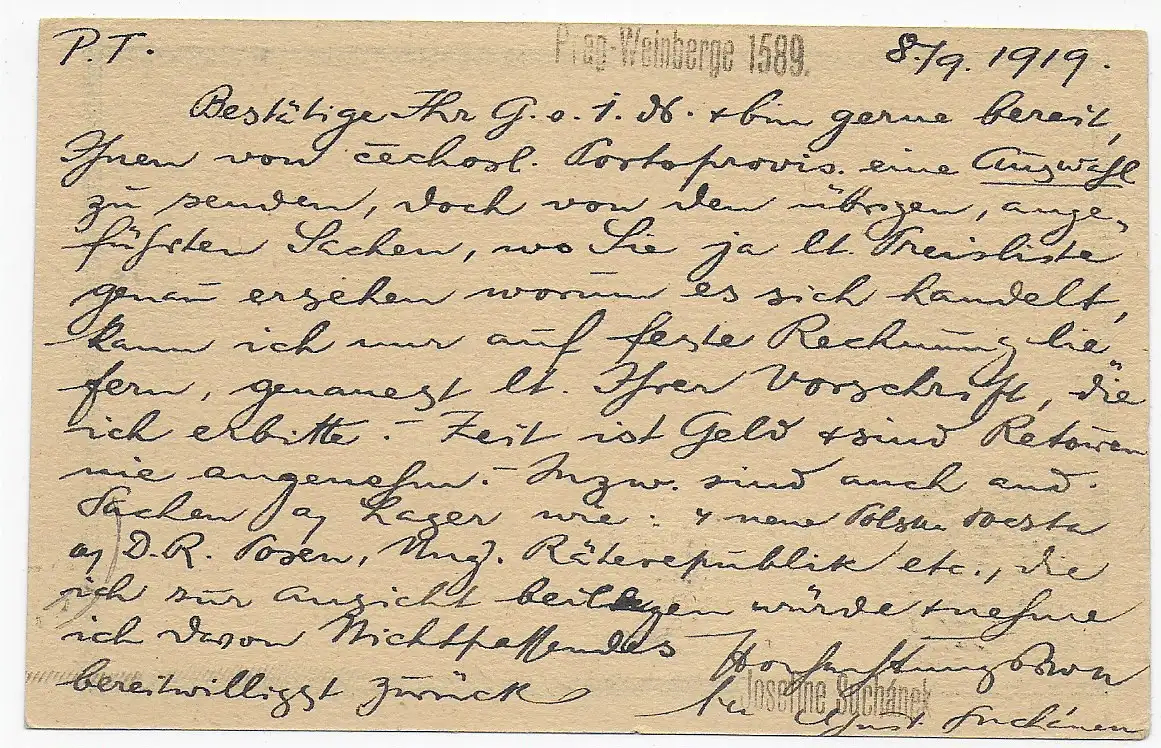 P.T. Prag-Weinberge 1589. 8./9. 1919.
Bestätige Ihr G. o. 1. d. + bin gerne bereit,
Ihnen von čechosl. Portoprovis. eine Auswahl
zu senden, doch von den übrigen, ange-
führten Sachen, wo Sie ja lt. Preisliste
genau ersehen worum es sich handelt,
kann ich nur auf feste Rechnung lie-
fern, genauest lt. Ihrer Vorschrift, die
ich erbitte. – Zeit ist Geld + sind Retouren
nie angenehm. – Inzw. sind auch and.
Sachen a/ Lager wie: 4 neue Polska Poczta
a/ D.R. Posen, Ung. Räterepublik etc., die
ich zur Ansicht beilegen würde + nehme
ich davon Nichtpassendes
bereitwilligst zurück
Josefine Suchánek